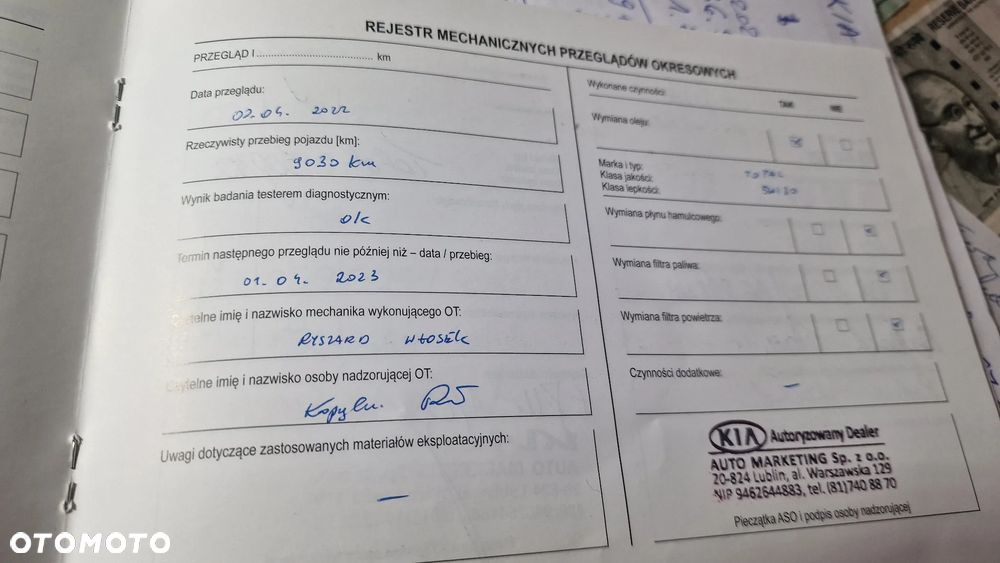 REJESTR MECHANICZNYCH PRZEGLĄDÓW OKRESOWYCH
PRZEGLĄD I .................................... km
Data przeglądu:
02.04. 2022
Rzeczywisty przebieg pojazdu [km]:
9030 km
Wynik badania testerem diagnostycznym:
ok
Termin następnego przeglądu nie później niż – data / przebieg:
01.04. 2023
imię i nazwisko mechanika wykonującego OT:
RYSZARD WŁOSEK
Czytelne imię i nazwisko osoby nadzorującej OT:
Uwagi dotyczące zastosowanych materiałów eksploatacyjnych:
—
Wykonane czynności:
TAK NIE
Wymiana oleju:
Marka i typ: TOTAL
Klasa jakości:
Klasa lepkości: 5W30
Wymiana płynu hamulcowego:
Wymiana filtra paliwa:
Wymiana filtra powietrza:
Czynności dodatkowe:
—
KIA Autoryzowany Dealer
AUTO MARKETING Sp. z o.o.
20-824 Lublin, al. Warszawska 129
NIP 9462644883, tel. (81)740 88 70
Pieczątka ASO i podpis osoby nadzorującej
KIA
OTOMOTO